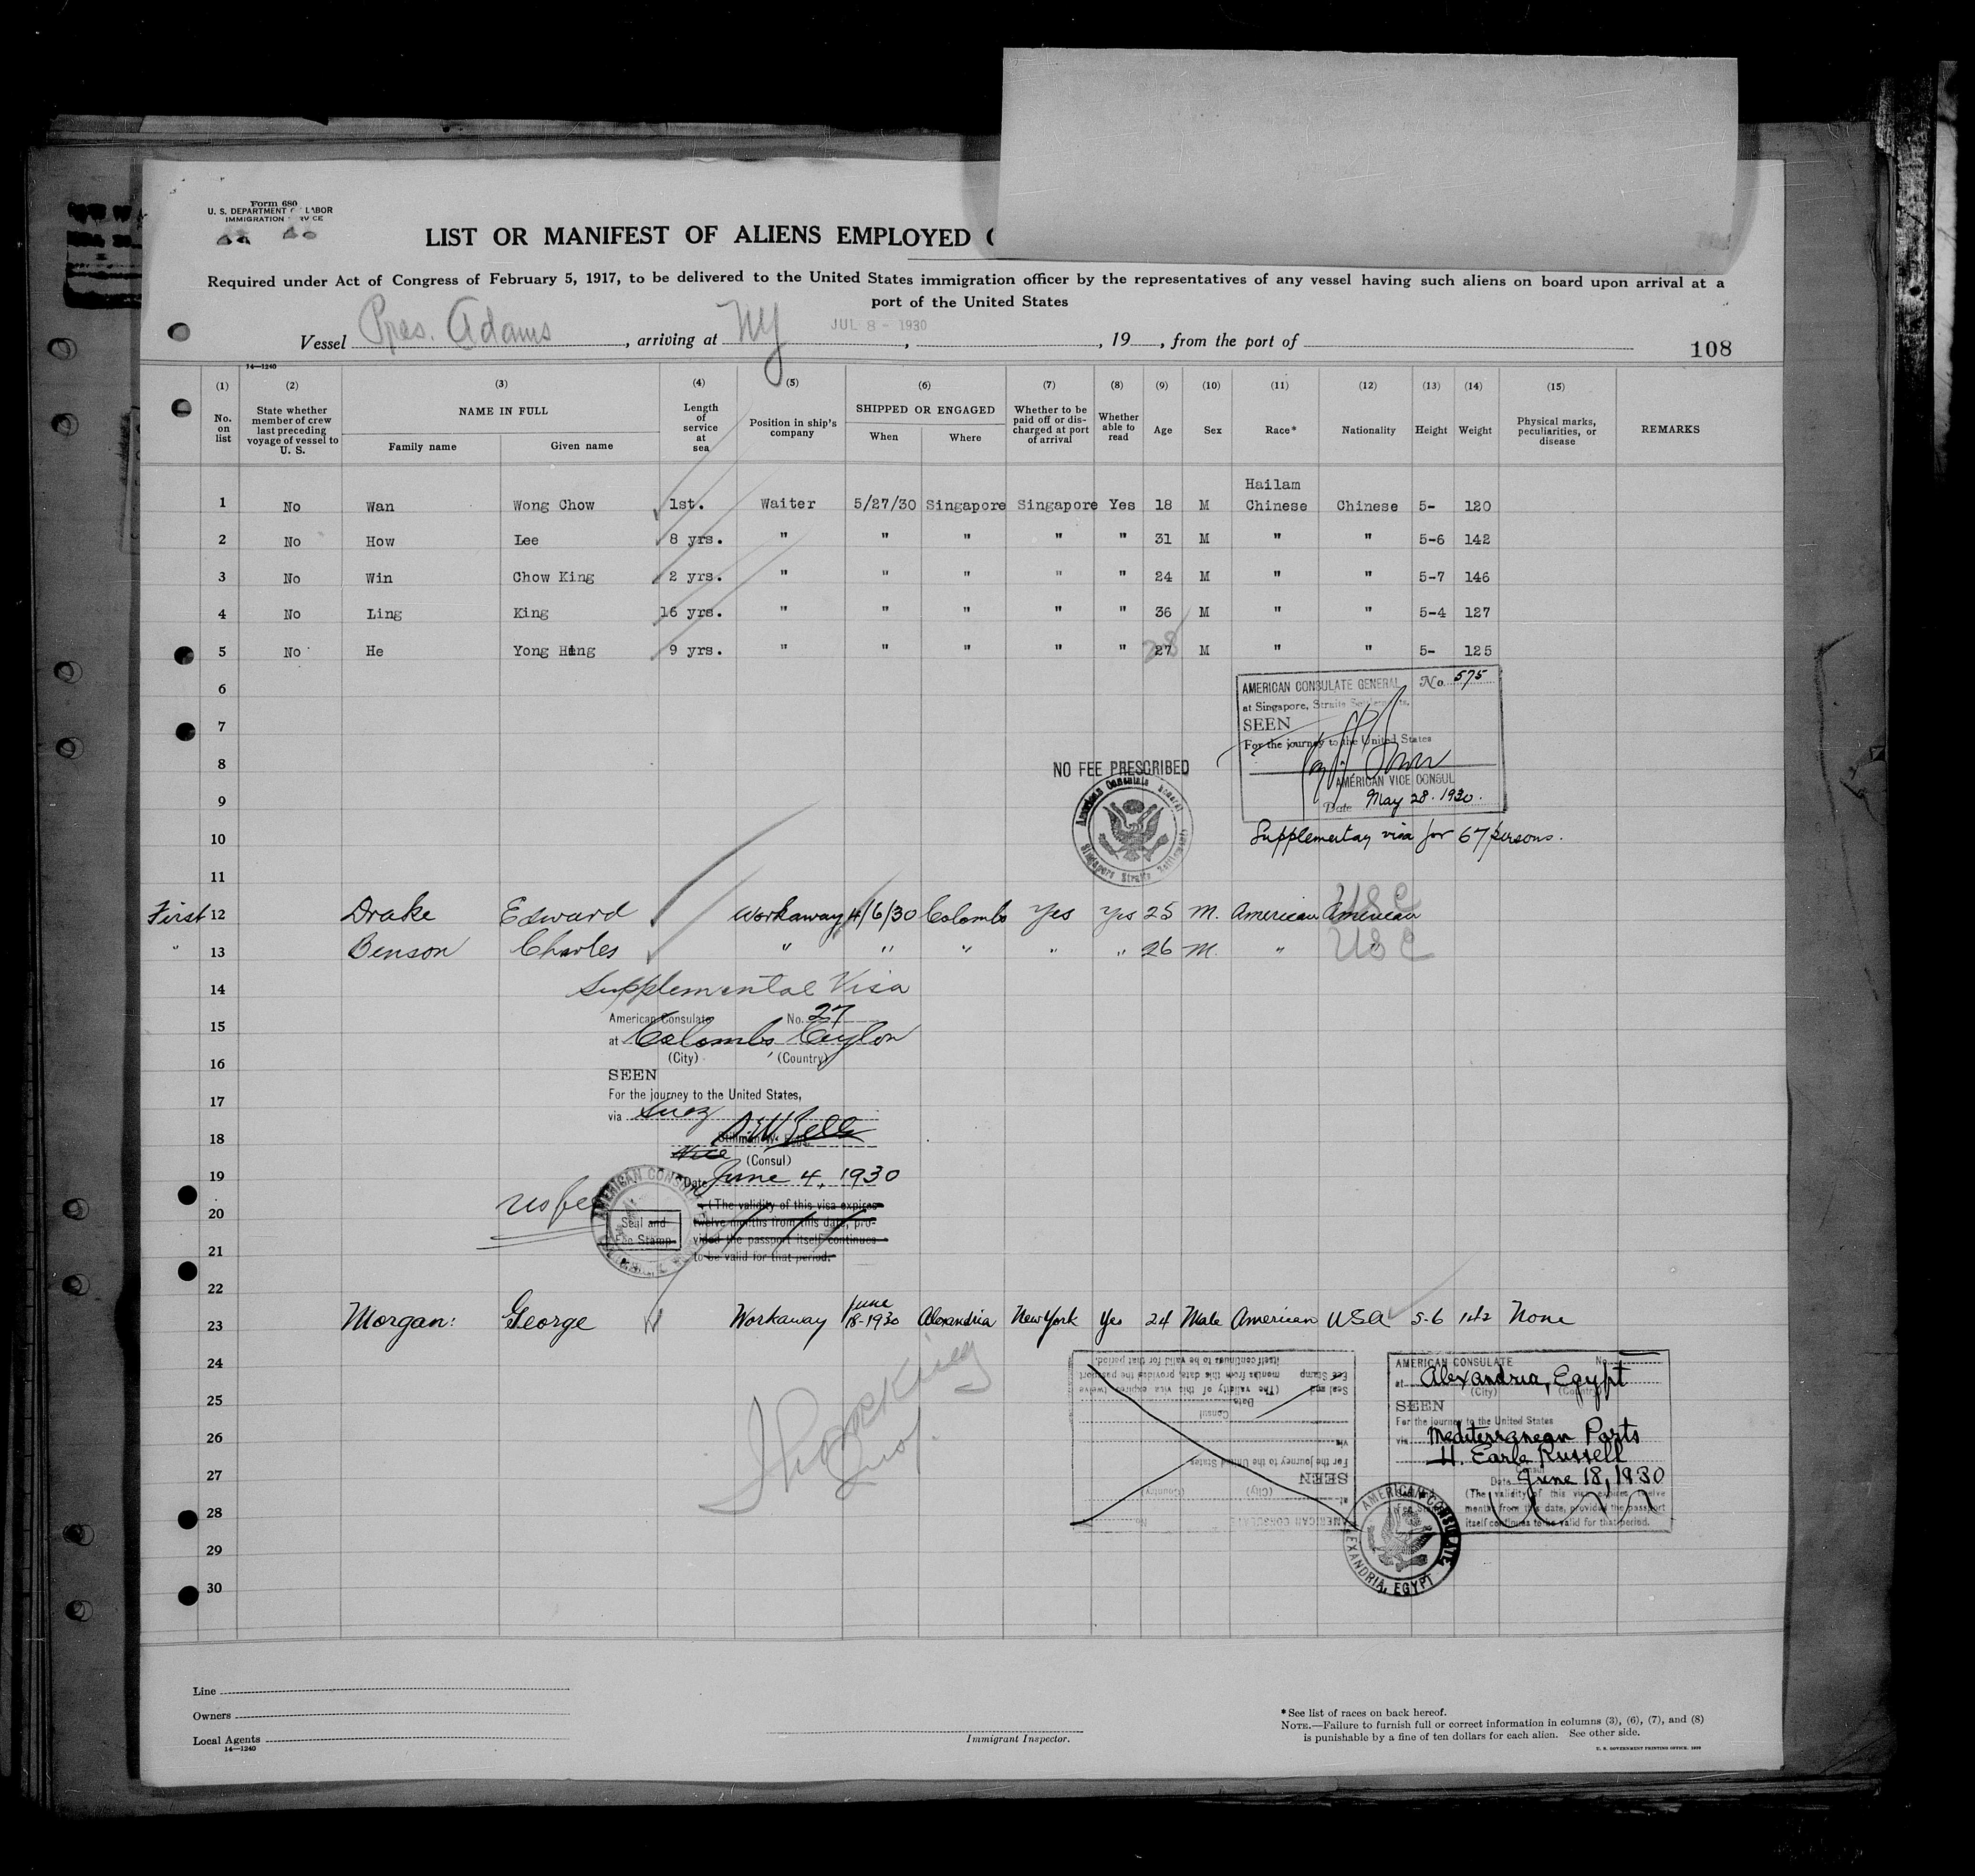 Form 680
U. S. DEPARTMENT OF LABOR
IMMIGRATION SERVICE
LIST OR MANIFEST OF ALIENS EMPLOYED
Required under Act of Congress of February 5, 1917, to be delivered to the United States immigration officer by the representatives of any vessel having such aliens on board upon arrival at a
port of the United States
Vessel Pres. Adams, arriving at NY JUL 8 - 1930, 19 , from the port of
108
14—1240
(1) (2) (3) (4) (5) (6) (7) (8) (9) (10) (11) (12) (13) (14) (15)
No. on list
State whether member of crew last preceding voyage of vessel to U. S.
NAME IN FULL
Family name
Given name
Length of service at sea
Position in ship's company
SHIPPED OR ENGAGED
When
Where
Whether to be paid off or discharged at port of arrival
Whether able to read
Age
Sex
Race*
Nationality
Height
Weight
Physical marks, peculiarities, or disease
REMARKS
Hailam
1 No Wan Wong Chow 1st. Waiter 5/27/30 Singapore Singapore Yes 18 M Chinese Chinese 5- 120
2 No How Lee 8 yrs. " " " " " 31 M " " 5-6 142
3 No Win Chow King 2 yrs. " " " " " 24 M " " 5-7 146
4 No Ling King 16 yrs. " " " " " 36 M " " 5-4 127
5 No He Yong Hing 9 yrs. " " " " " 27 28 M " " 5- 125
6
7
8
9
10
11
AMERICAN CONSULATE GENERAL No. 575
at Singapore, Straits Settlements.
SEEN
For the journey to the United States
AMERICAN VICE CONSUL
Date May 28. 1930.
NO FEE PRESCRIBED
American Consulate General
Singapore Straits Settlements
Supplementary visa for 67 persons.
First 12 Drake Edward Workaway 4/6/30 Colombo Yes Yes 25 M. American American USC
" 13 Benson Charles " " " " " 26 M. " " USC
14 Supplemental Visa
15
American Consulate No. 27
at Colombo, Ceylon
(City) (Country)
16
SEEN
For the journey to the United States,
17
via Suez
18
Vice (Consul)
19
Date June 4, 1930
no fee
AMERICAN CONSULATE
Seal and
Fee Stamp
20
(The validity of this visa expires
twelve months from this date, pro-
vided the passport itself continues
to be valid for that period.
21
22
23 Morgan: George Workaway June 18-1930 Alexandria New York Yes 24 Male American USA 5-6 142 None
24
25
26
27
28
29
30
AMERICAN CONSULATE No.
at
(City) (Country)
SEEN
For the journey to the United States
via
Consul
Date
Seal and Fee Stamp
(The validity of this visa expires twelve
months from this date, provided the passport
itself continues to be valid for that period.
AMERICAN CONSULATE No.
at Alexandria, Egypt
(City) (Country)
SEEN
For the journey to the United States
via Mediterranean Ports
H. Earle Russell
Consul
Date June 18, 1930
(The validity of this visa expires twelve
months from this date, provided the passport
itself continues to be valid for that period.
AMERICAN CONSULATE
ALEXANDRIA, EGYPT
Line
Owners
Local Agents
14—1240
Immigrant Inspector.
*See list of races on back hereof.
NOTE.—Failure to furnish full or correct information in columns (3), (6), (7), and (8)
is punishable by a fine of ten dollars for each alien. See other side.
U. S. GOVERNMENT PRINTING OFFICE: 1929